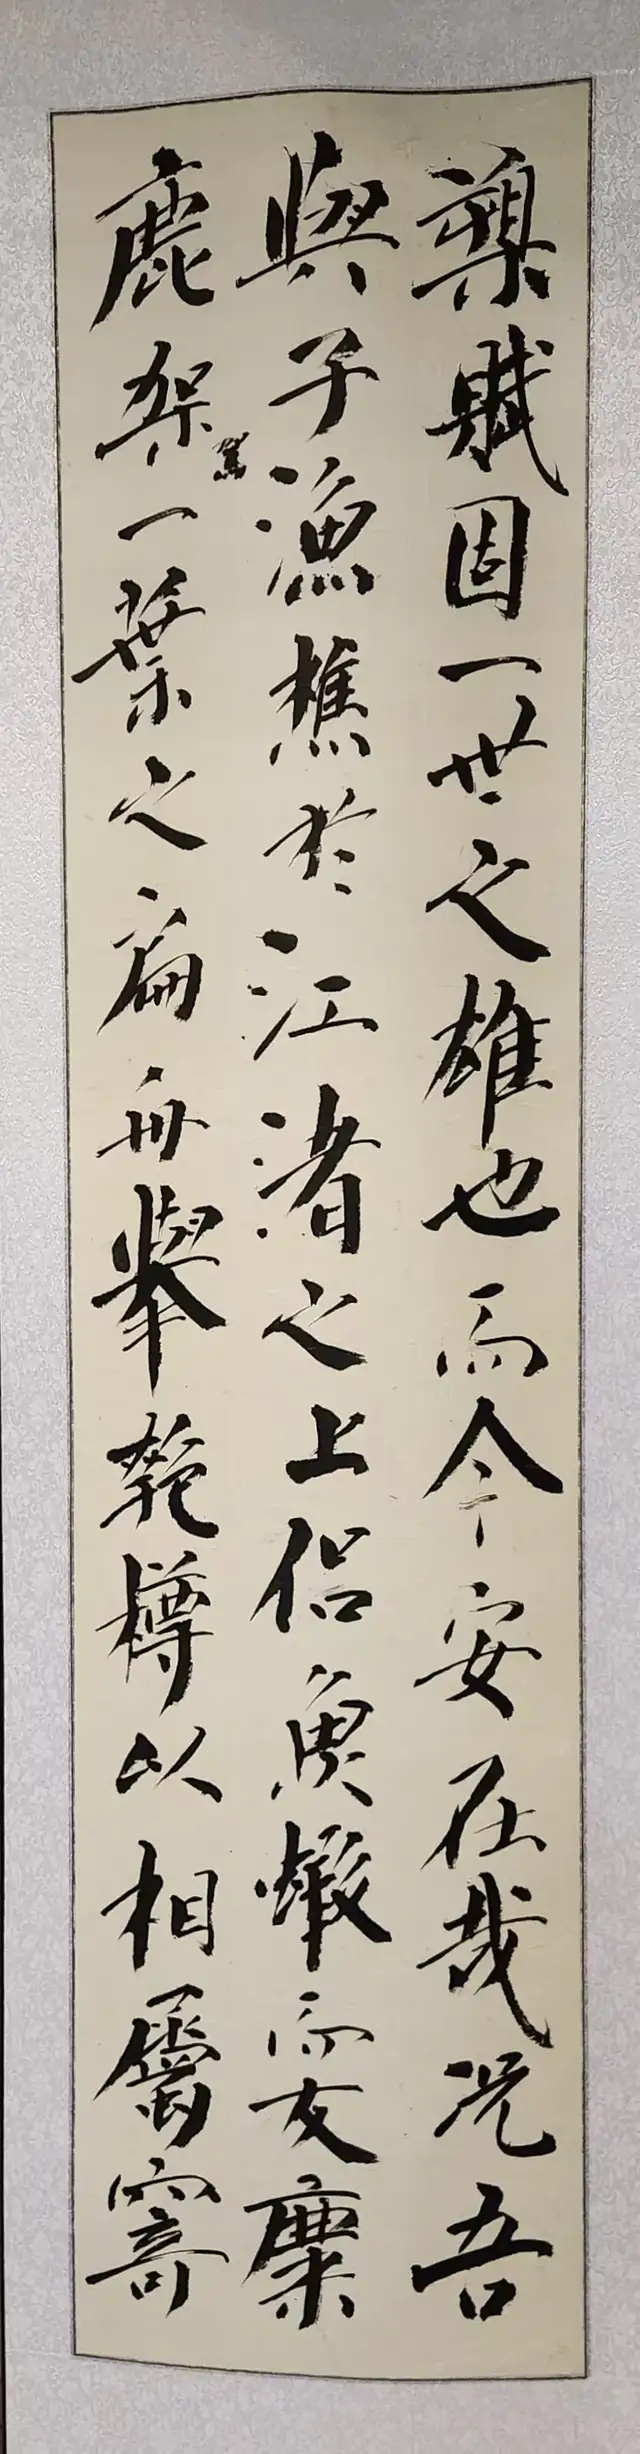 槊賦固一世之雄也而今安在哉况吾
與子漁樵於江渚之上侶魚蝦而友麋
鹿架一葉之扁舟舉匏樽以相屬寄